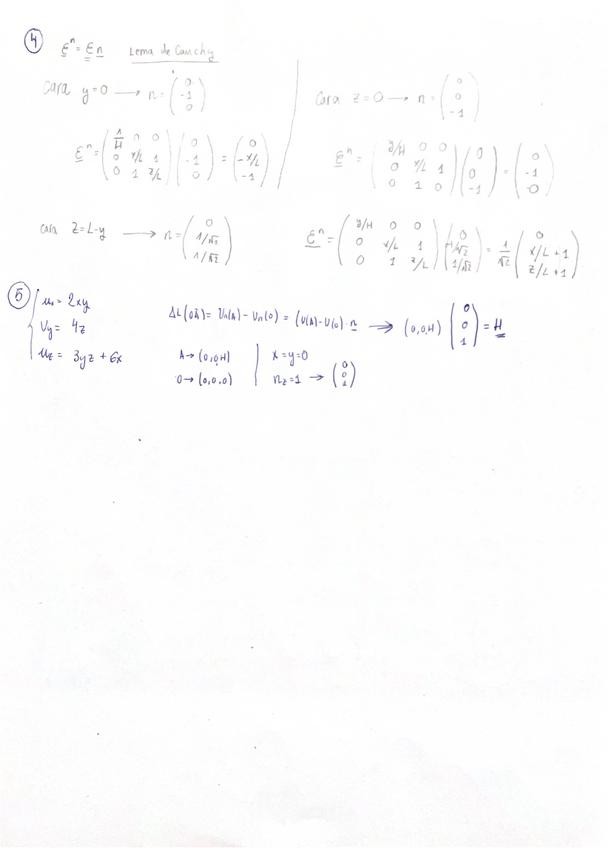 4 ε^n = ε n Lema de Cauchy
Cara y=0 → n = (0 -1 0)
ε^n = (1/H 0 0 0 x/L 1 0 1 z/L) (0 -1 0) = (0 -x/L -1)
Cara z=0 → n = (0 0 -1)
ε^n = (y/H 0 0 0 x/L 1 0 1 0) (0 0 -1) = (0 -1 -0)
cara Z=L-y → n = (0 1/√2 1/√2)
ε^n = (y/H 0 0 0 x/L 1 0 1 z/L) (0 1/√2 1/√2) = 1/√2 (0 x/L+1 z/L+1)
5 = 2xy
Uy = 4z
Uz = 3yz + 6x
ΔL(OA) = Un(A) - Un(0) = (U(A) - U(0)) · n → (0,0,H) (0 0 1) = H
A → (0,0,H)
0 → (0,0,0)
x=y=0
nz=1 → (0 0 1)